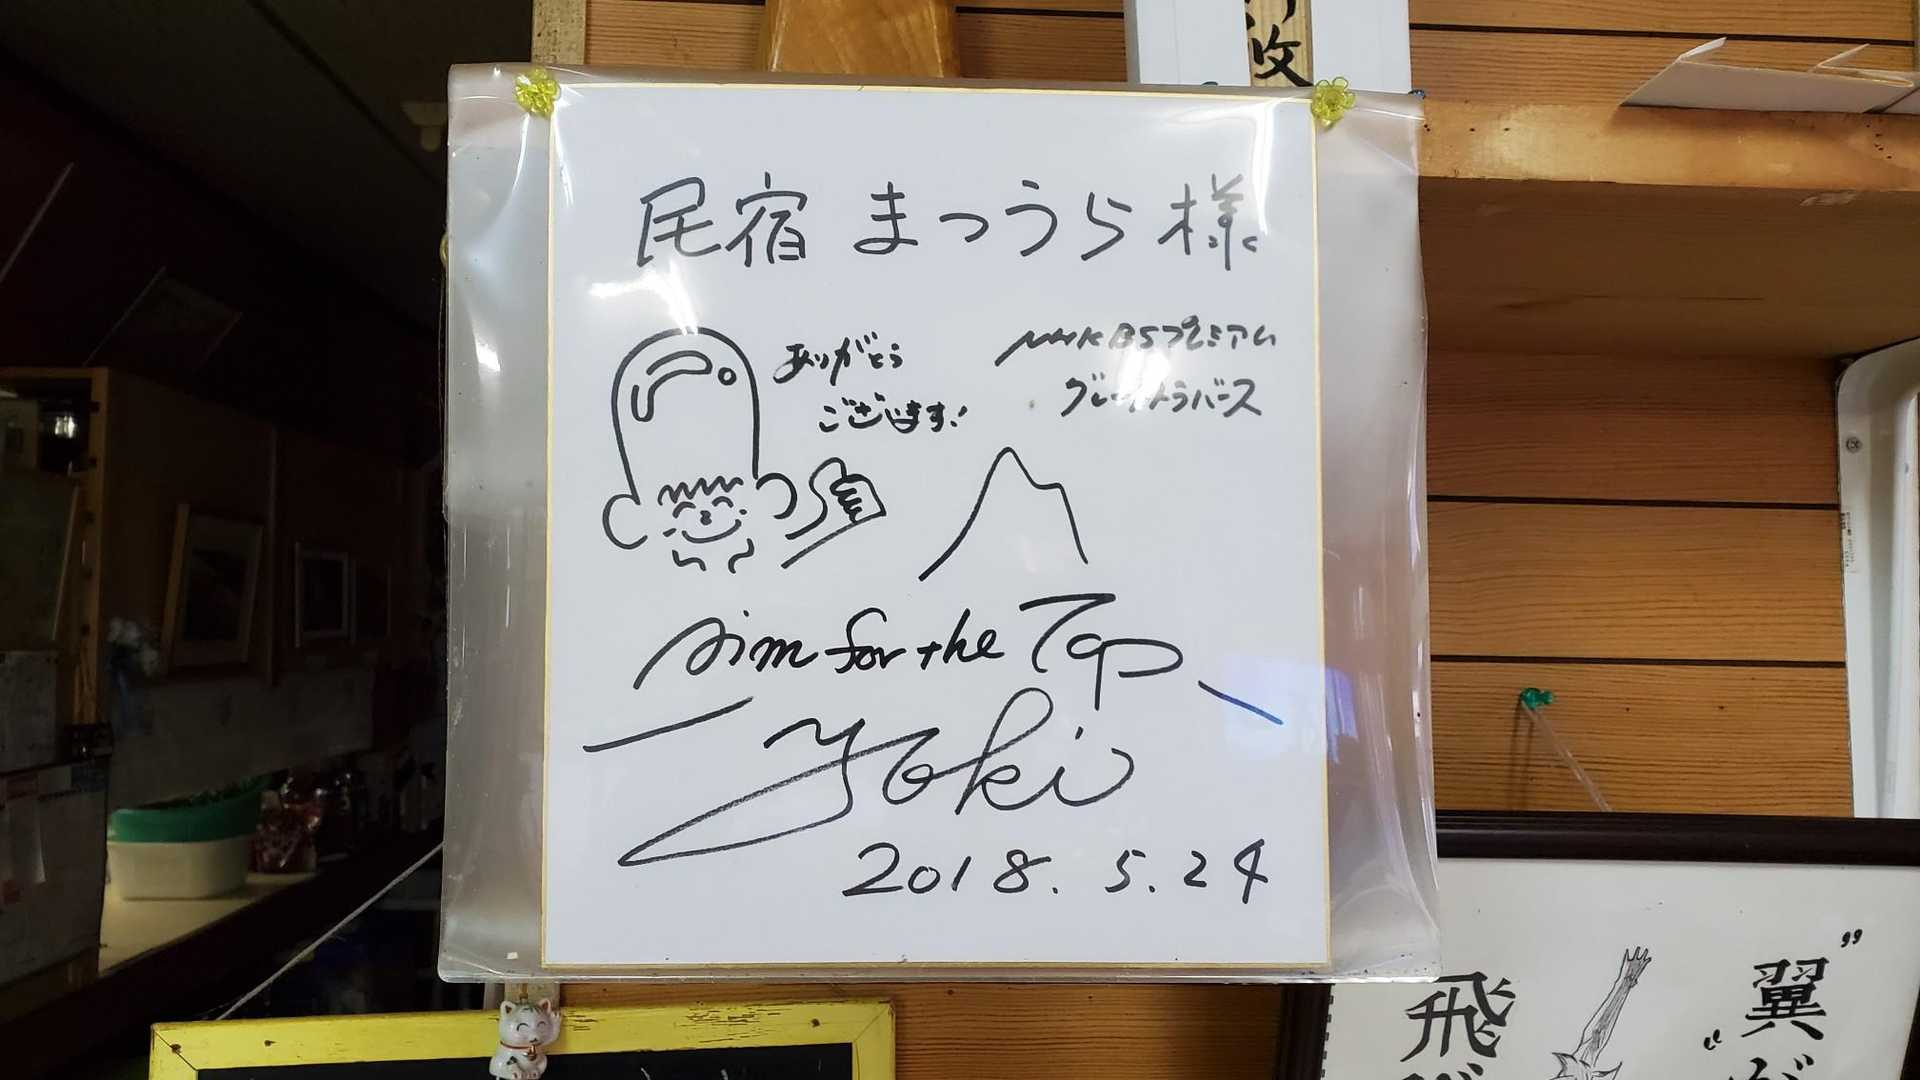 民宿 まつうら 様
ありがとう
ございます!
NHK BSプレミアム
グレートトラバース
Aim for the Top
Yoki
2018. 5. 24
攻
"翼が
飛び